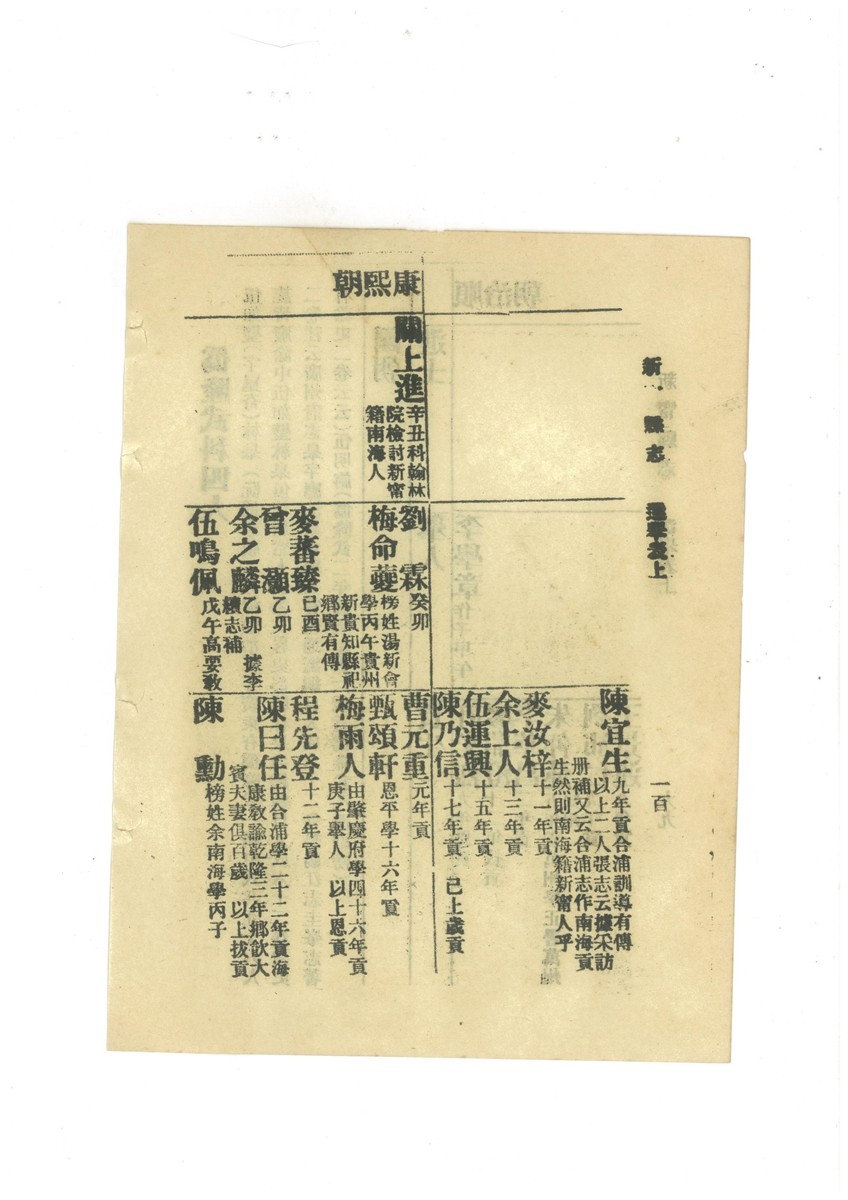 新 縣志
選舉表上
一百九
陳宜生
九年貢合浦訓導有傳
以上二人張志云據采訪
册補又云合浦志作南海貢
生然則南海籍新甯人乎
麥汝梓
十一年貢
余上人
十三年貢
伍運興
十五年貢
陳乃信
十七年貢 已上歲貢
康熙朝
關上進
辛丑科翰林
院檢討新甯
籍南海人
劉 霖
癸卯
梅命夔
榜姓湯新會
學丙午貴州
新貴知縣祀
鄉賢有傳
麥蕃臻
己酉
曾 灝
乙卯
余之麟
乙卯 據李
續志補
伍鳴佩
戊午高要敎
曹元重
元年貢
甄頌軒
恩平學十六年貢
梅雨人
由肇慶府學四十六年貢
庚子舉人 以上恩貢
程先登
十二年貢
陳曰任
由合浦學二十二年貢海
康敎諭乾隆三年鄉飲大
賓夫妻俱百歲 以上拔貢
陳 勳
榜姓余南海學丙子